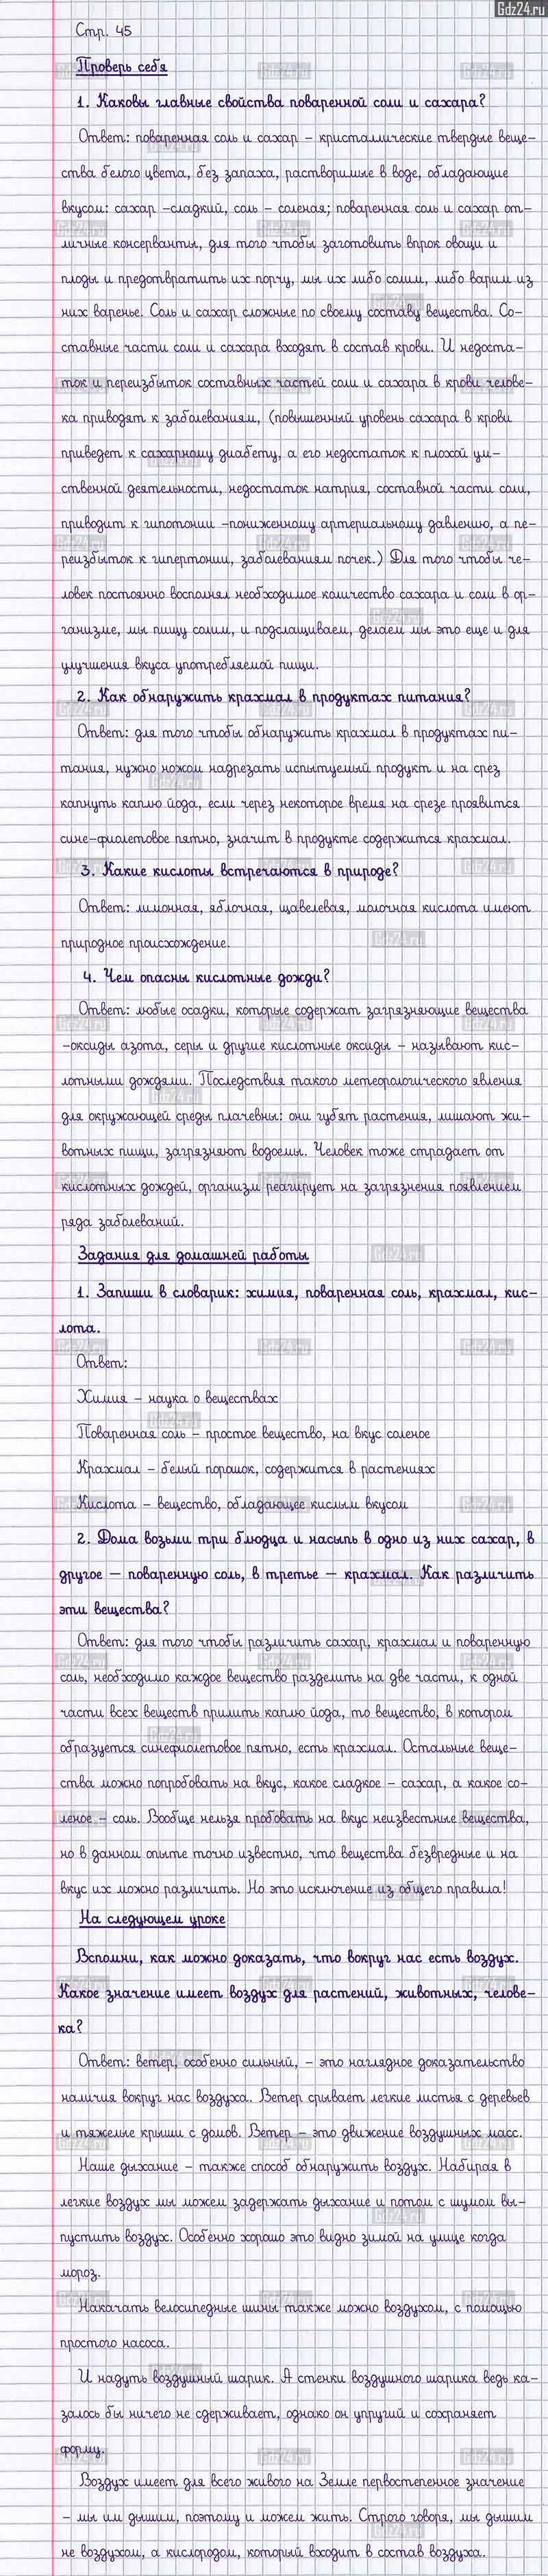 Gdz24.ru
Стр. 45
Проверь себя
1. Каковы главные свойства поваренной соли и сахара?
Ответ: поваренная соль и сахар – кристаллические твердые веще-
ства белого цвета, без запаха, растворимые в воде, обладающие
вкусом: сахар –сладкий, соль – соленая; поваренная соль и сахар от-
личные консерванты, для того чтобы заготовить впрок овощи и
плоды и предотвратить их порчу, мы их либо солим, либо варим из
них варенье. Соль и сахар сложные по своему составу вещества. Со-
ставные части соли и сахара входят в состав крови. И недоста-
ток и переизбыток составных частей соли и сахара в крови челове-
ка приводят к заболеваниям, (повышенный уровень сахара в крови
приведет к сахарному диабету, а его недостаток к плохой ум-
ственной деятельности, недостаток натрия, составной части соли,
приводит к гипотонии –пониженному артериальному давлению, а пе-
реизбыток к гипертонии, заболеваниям почек.) Для того чтобы че-
ловек постоянно восполнял необходимое количество сахара и соли в ор-
ганизме, мы пищу солим, и подслащиваем, делаем мы это еще и для
улучшения вкуса употребляемой пищи.
2. Как обнаружить крахмал в продуктах питания?
Ответ: для того чтобы обнаружить крахмал в продуктах пи-
тания, нужно ножом надрезать испытуемый продукт и на срез
капнуть каплю йода, если через некоторое время на срезе проявится
сине-фиолетовое пятно, значит в продукте содержится крахмал.
3. Какие кислоты встречаются в природе?
Ответ: лимонная, яблочная, щавелевая, молочная кислота имеют
природное происхождение.
4. Чем опасны кислотные дожди?
Ответ: любые осадки, которые содержат загрязняющие вещества
–оксиды азота, серы и другие кислотные оксиды – называют кис-
лотными дождями. Последствия такого метеорологического явления
для окружающей среды плачевны: они губят растения, лишают жи-
вотных пищи, загрязняют водоемы. Человек тоже страдает от
кислотных дождей, организм реагирует на загрязнения появлением
ряда заболеваний.
Задания для домашней работы
1. Запиши в словарик: химия, поваренная соль, крахмал, кис-
лота.
Ответ:
Химия – наука о веществах
Поваренная соль – простое вещество, на вкус соленое
Крахмал – белый порошок, содержится в растениях
Кислота – вещество, обладающее кислым вкусом
2. Дома возьми три блюдца и насыпь в одно из них сахар, в
другое — поваренную соль, в третье — крахмал. Как различить
эти вещества?
Ответ: для того чтобы различить сахар, крахмал и поваренную
соль, необходимо каждое вещество разделить на две части, к одной
части всех веществ прилить каплю йода, то вещество, в котором
образуется синефиолетовое пятно, есть крахмал. Остальные веще-
ства можно попробовать на вкус, какое сладкое – сахар, а какое со-
леное – соль. Вообще нельзя пробовать на вкус неизвестные вещества,
но в данном опыте точно известно, что вещества безвредные и на
вкус их можно различить. Но это исключение из общего правила!
На следующем уроке
Вспомни, как можно доказать, что вокруг нас есть воздух.
Какое значение имеет воздух для растений, животных, челове-
ка?
Ответ: ветер, особенно сильный, – это наглядное доказательство
наличия вокруг нас воздуха. Ветер срывает легкие листья с деревьев
и тяжелые крыши с домов. Ветер – это движение воздушных масс.
Наше дыхание – также способ обнаружить воздух. Набирая в
легкие воздух мы можем задержать дыхание и потом с шумом вы-
пустить воздух. Особенно хорошо это видно зимой на улице когда
мороз.
Накачать велосипедные шины также можно воздухом, с помощью
простого насоса.
И надуть воздушный шарик. А стенки воздушного шарика ведь ка-
залось бы ничего не сдерживает, однако он упругий и сохраняет
форму.
Воздух имеет для всего живого на Земле первостепенное значение
– мы им дышим, поэтому и можем жить. Строго говоря, мы дышим
не воздухом, а кислородом, который входит в состав воздуха.